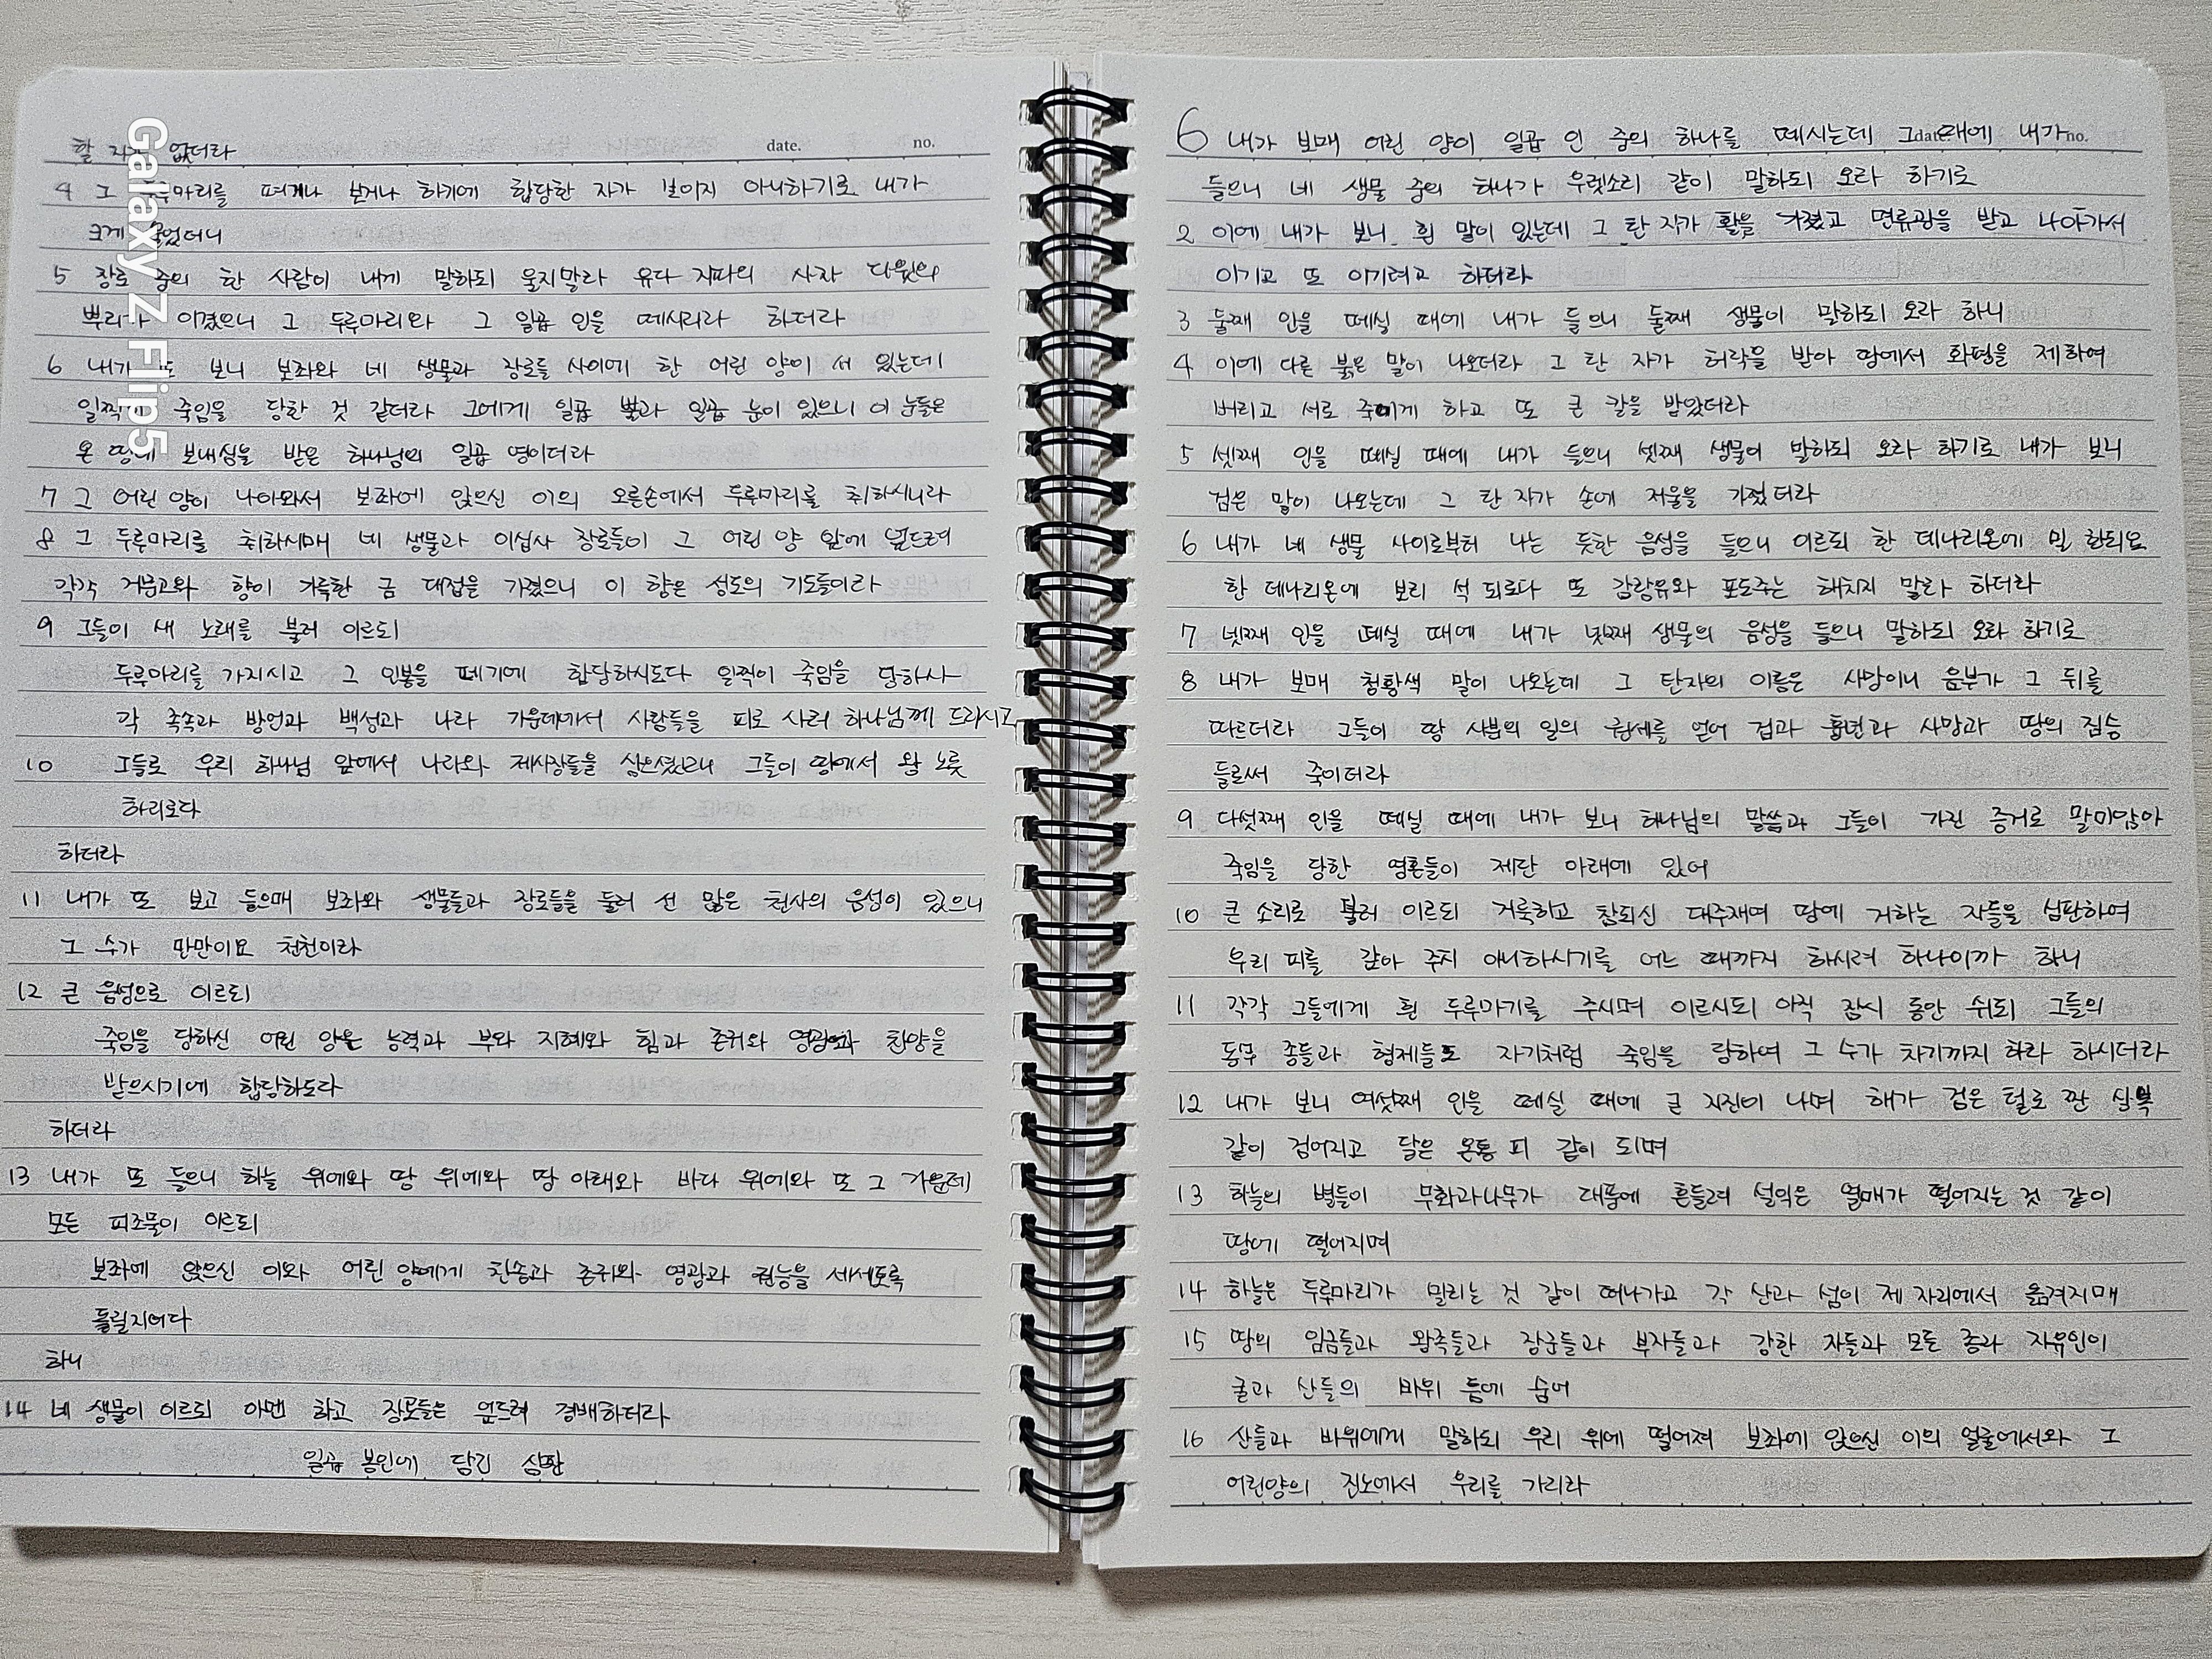 할 자가 없더라
date. no.
4 그 두루마리를 펴거나 보거나 하기에 합당한 자가 보이지 아니하기로 내가
크게 울었더니
5 장로 중의 한 사람이 내게 말하되 울지말라 유다 지파의 사자 다윗의
뿌리가 이겼으니 그 두루마리와 그 일곱 인을 떼시리라 하더라
6 내가 또 보니 보좌와 네 생물과 장로들 사이에 한 어린 양이 서 있는데
일찍이 죽임을 당한 것 같더라 그에게 일곱 뿔과 일곱 눈이 있으니 이 눈들은
온 땅에 보내심을 받은 하나님의 일곱 영이더라
7 그 어린 양이 나아와서 보좌에 앉으신 이의 오른손에서 두루마리를 취하시니라
8 그 두루마리를 취하시매 네 생물과 이십사 장로들이 그 어린 양 앞에 엎드려
각각 거문고와 향이 가득한 금 대접을 가졌으니 이 향은 성도의 기도들이라
9 그들이 새 노래를 불러 이르되
두루마리를 가지시고 그 인봉을 떼기에 합당하시도다 일찍이 죽임을 당하사
각 족속과 방언과 백성과 나라 가운데에서 사람들을 피로 사러 하나님께 드리시고
10 그들로 우리 하나님 앞에서 나라와 제사장들을 삼으셨으니 그들이 땅에서 왕 노릇
하리로다
하더라
11 내가 또 보고 들으매 보좌와 생물들과 장로들을 둘러 선 많은 천사의 음성이 있으니
그 수가 만만이요 천천이라
12 큰 음성으로 이르되
죽임을 당하신 어린 양은 능력과 부와 지혜와 힘과 존귀와 영광과 찬양을
받으시기에 합당하도라
하더라
13 내가 또 들으니 하늘 위에와 땅 위에와 땅 아래와 바다 위에와 또 그 가운데
모든 피조물이 이르되
보좌에 앉으신 이와 어린 양에게 찬송과 존귀와 영광과 권능을 세세토록
돌릴지어다
하니
14 네 생물이 이르되 아멘 하고 장로들은 엎드려 경배하더라
일곱 봉인에 담긴 심판
6 내가 보매 어린 양이 일곱 인 중의 하나를 떼시는데 그 때에 내가
date. no.
들으니 네 생물 중의 하나가 우렛소리 같이 말하되 오라 하기로
2 이에 내가 보니 흰 말이 있는데 그 탄 자가 활을 가졌고 면류광을 받고 나아가서
이기고 또 이기려고 하더라
3 둘째 인을 떼실 때에 내가 들으니 둘째 생물이 말하되 오라 하니
4 이에 다른 붉은 말이 나오더라 그 탄 자가 허락을 받아 땅에서 화평을 제하여
버리고 서로 죽이게 하고 또 큰 칼을 받았더라
5 셋째 인을 떼실 때에 내가 들으니 셋째 생물이 말하되 오라 하기로 내가 보니
검은 말이 나오는데 그 탄 자가 손에 저울을 가졌더라
6 내가 네 생물 사이로부터 나는 듯한 음성을 들으니 이르되 한 데나리온에 밀 한되요
한 데나리온에 보리 석 되로다 또 감람유와 포도주는 해치지 말라 하더라
7 넷째 인을 떼실 때에 내가 넷째 생물의 음성을 들으니 말하되 오라 하기로
8 내가 보매 청황색 말이 나오는데 그 탄자의 이름은 사망이니 음부가 그 뒤를
따르더라 그들이 땅 사분의 일의 권세를 얻어 검과 흉년과 사망과 땅의 짐승
들로써 죽이더라
9 다섯째 인을 떼실 때에 내가 보니 하나님의 말씀과 그들이 가진 증거로 말미암아
죽임을 당한 영혼들이 제단 아래에 있어
10 큰 소리로 불러 이르되 거룩하고 참되신 대주재여 땅에 거하는 자들을 심판하여
우리 피를 갚아 주지 아니하시기를 어느 때까지 하시려 하나이까 하니
11 각각 그들에게 흰 두루마기를 주시며 이르시되 아직 잠시 동안 쉬되 그들의
동무 종들과 형제들도 자기처럼 죽임을 당하여 그 수가 차기까지 하라 하시더라
12 내가 보니 여섯째 인을 떼실 때에 큰 지진이 나며 해가 검은 털로 짠 상복
같이 검어지고 달은 온통 피 같이 되며
13 하늘의 별들이 무화과나무가 대풍에 흔들려 설익은 열매가 떨어지는 것 같이
땅에 떨어지며
14 하늘은 두루마리가 말리는 것 같이 떠나가고 각 산과 섬이 제 자리에서 옮겨지매
15 땅의 임금들과 왕족들과 장군들과 부자들과 강한 자들과 모든 종과 자유인이
굴과 산들의 바위 틈에 숨어
16 산들과 바위에게 말하되 우리 위에 떨어져 보좌에 앉으신 이의 얼굴에서와 그
어린양의 진노에서 우리를 가리라
Galaxy Z Flip5